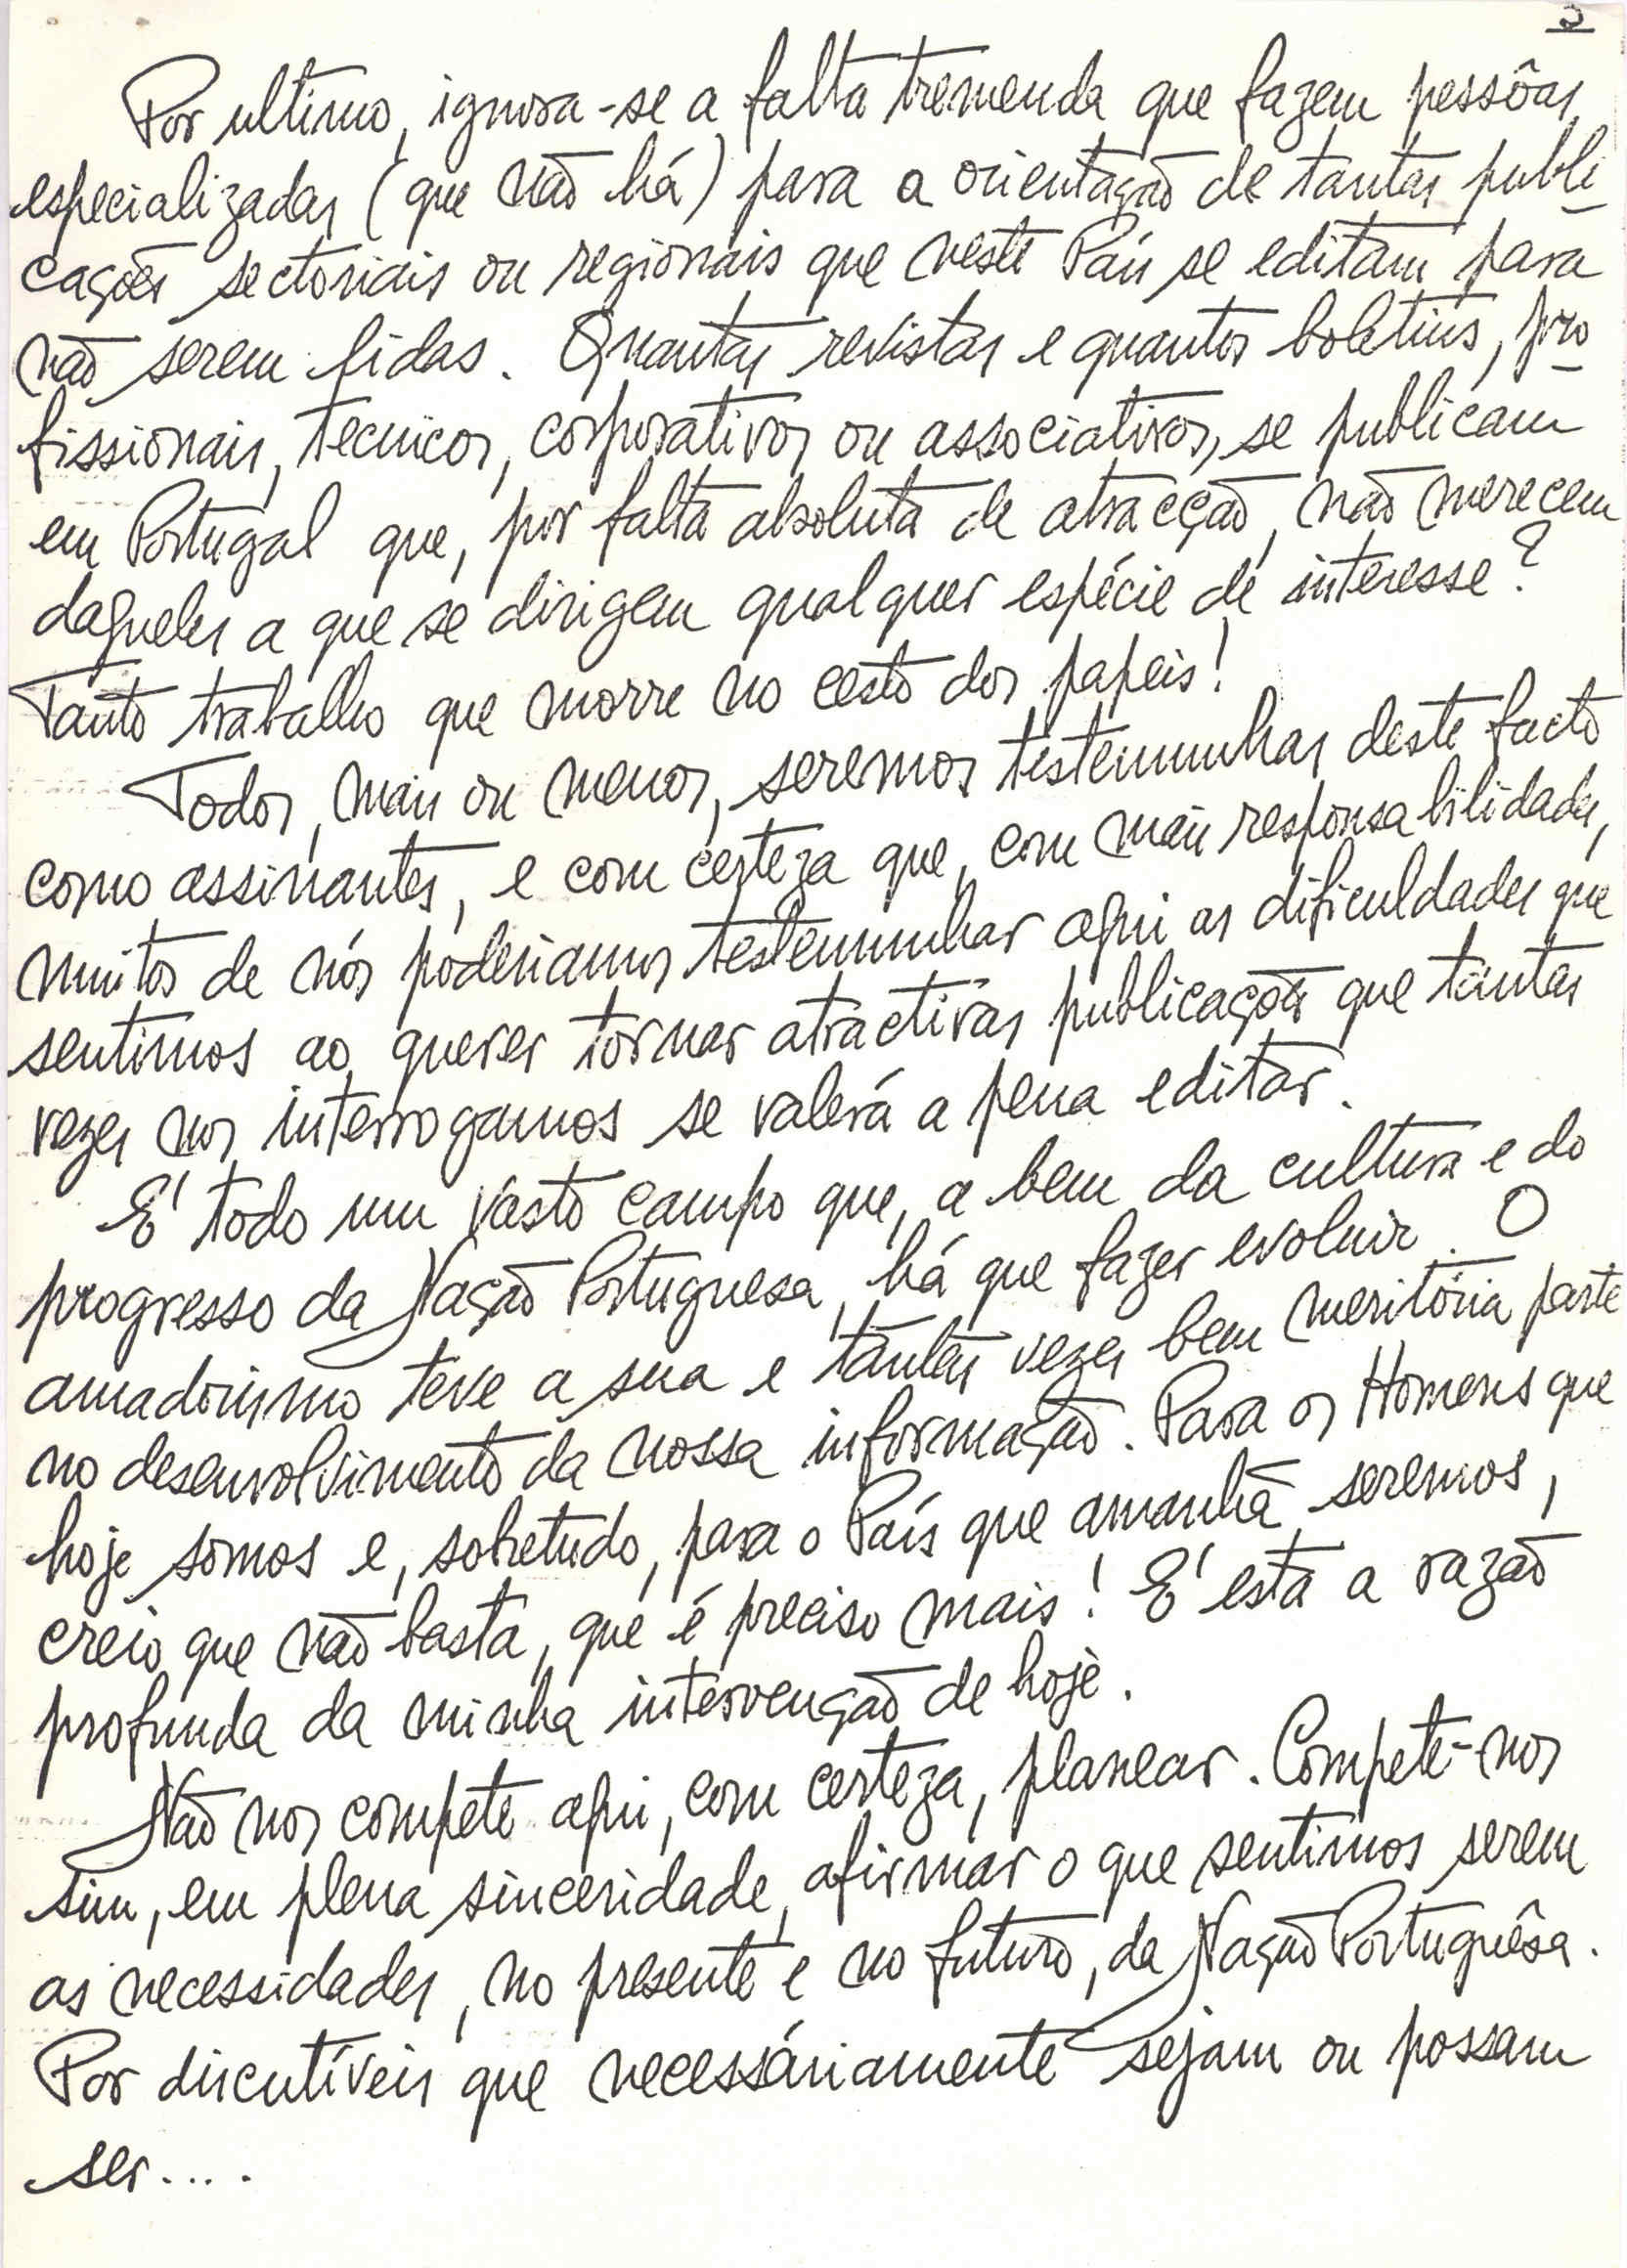 Por ultimo, ignora-se a falta tremenda que fazem pessôas
especializadas (que não há) para a orientação de tantas publi
cações sectoriais ou regionais que neste País se editam para
não serem lidas. Quantas revistas e quantos boletins, pro
fissionais, tecnicos, corporativos ou associativos, se publicam
em Portugal que, por falta absoluta de atracção, não merecem
daqueles a que se dirigem qualquer espécie de interesse?
Tanto trabalho que morre no cesto dos papeis!
Todos, mais ou menos, seremos testemunhas deste facto
como assinantes, e com certeza que, com mais responsabilidades,
muitos de nós poderiamos testemunhar aqui as dificuldades que
sentimos ao querer tornar atractivas publicações que tantas
vezes nos interrogamos se valerá a pena editar.
E' todo um vasto campo que, a bem da cultura e do
progresso da Nação Portuguesa, há que fazer evoluir. O
amadorismo teve a sua e tantas vezes bem meritória parte
no desenvolvimento da nossa informação. Para os Homens que
hoje somos e, sobretudo, para o País que amanhã seremos,
creio que não basta, que é preciso mais! E' esta a razão
profunda da minha intervenção de hoje.
Não nos compete aqui, com certeza, planear. Compete-nos
sim, em plena sinceridade, afirmar o que sentimos serem
as necessidades, no presente e no futuro, da Nação Portuguêsa.
Por discutíveis que necessáriamente sejam ou possam
ser....